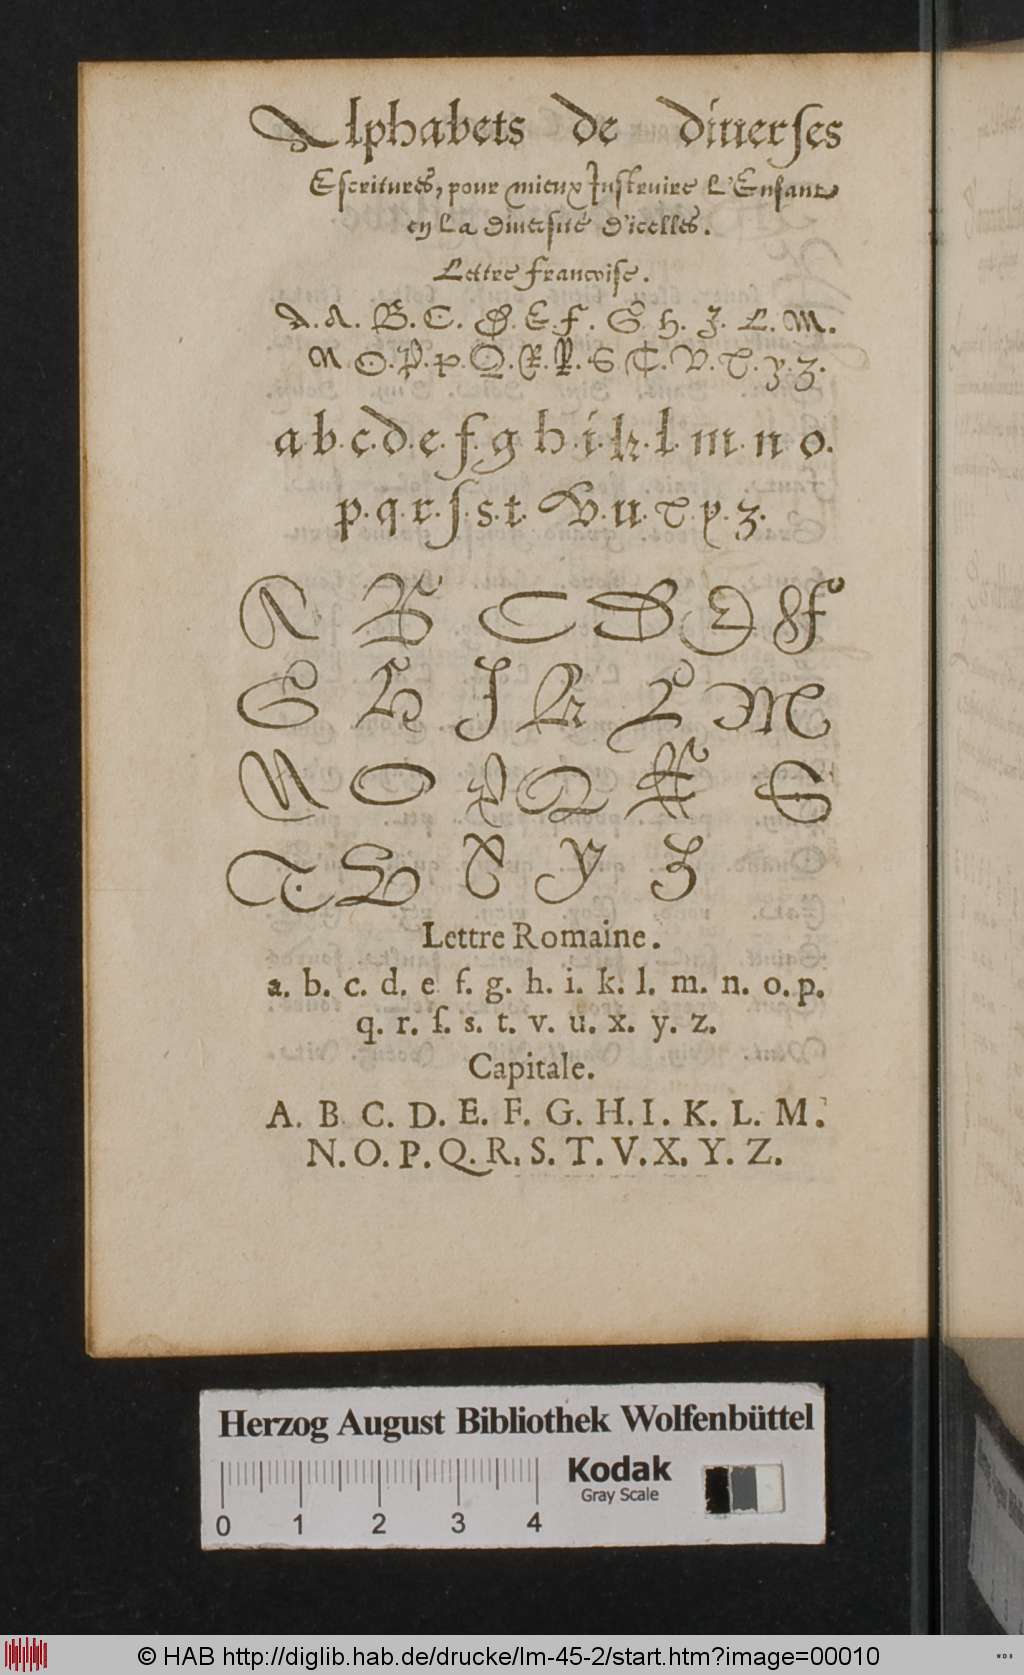 Alphabets de diuerſes
Eſcritures, pour mieux Jnſtruire L'Enfant
en La diuerſité d'icelles.
Lettre françoiſe.
A. A. B. C. D. E. F. G. H. J. L. M.
N O. P. P. Q. R. R. S T. V. X. y. z.
a b. c. d. e. f. g h. i. k. l. m. n o.
p. q. r. ſ. s. t. v. u. x. y. z.
A B C D E F
G H J K L M
N O P Q R S
T. V X Y Z
Lettre Romaine.
a. b. c. d. e f. g. h. i. k. l. m. n. o. p.
q. r. ſ. s. t. v. u. x. y. z.
Capitale.
A. B C. D. E. F. G. H. I. K. L. M.
N. O. P. Q. R. S. T. V. X. Y. Z.
Herzog August Bibliothek Wolfenbüttel
Kodak
Gray Scale
0 1 2 3 4
© HAB http://diglib.hab.de/drucke/lm-45-2/start.htm?image=00010